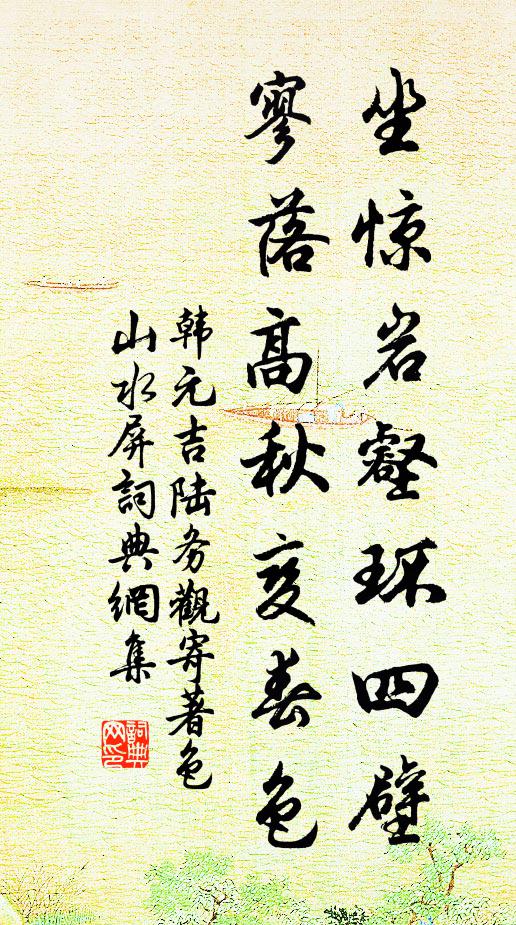 坐惊岩壑环四壁
寥落高秋变春色
韩元吉陆务觀寄著色
山水屏詞典網集
詞典網印